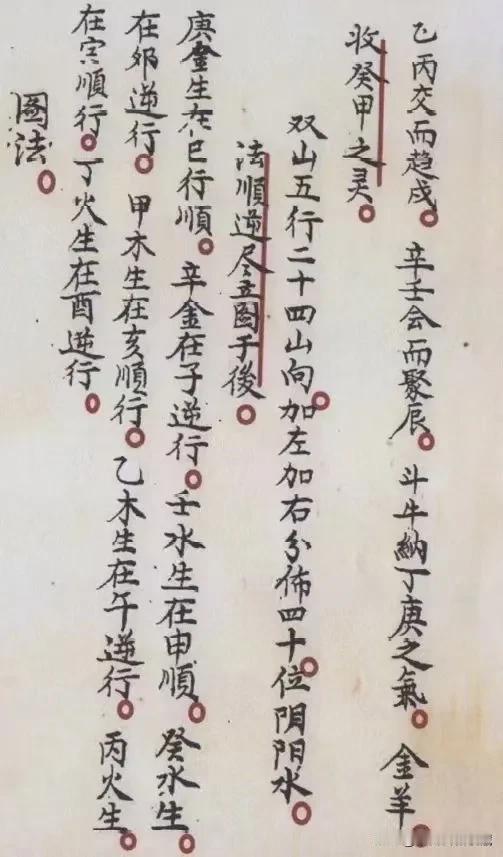 乙丙交而趋戍。辛壬会而聚辰。斗牛納丁庚之氣。金羊
收癸甲之灵。
双山五行二十四山向加左加右分佈四十位阴阳水
法順逆尽立图于後。
庚金生在巳行順。辛金在子逆行。壬水生在申順。癸水生
在卯逆行。甲木生在亥順行。乙木生在午逆行。丙火生
在寅順行。丁火生在酉逆行。
图法。